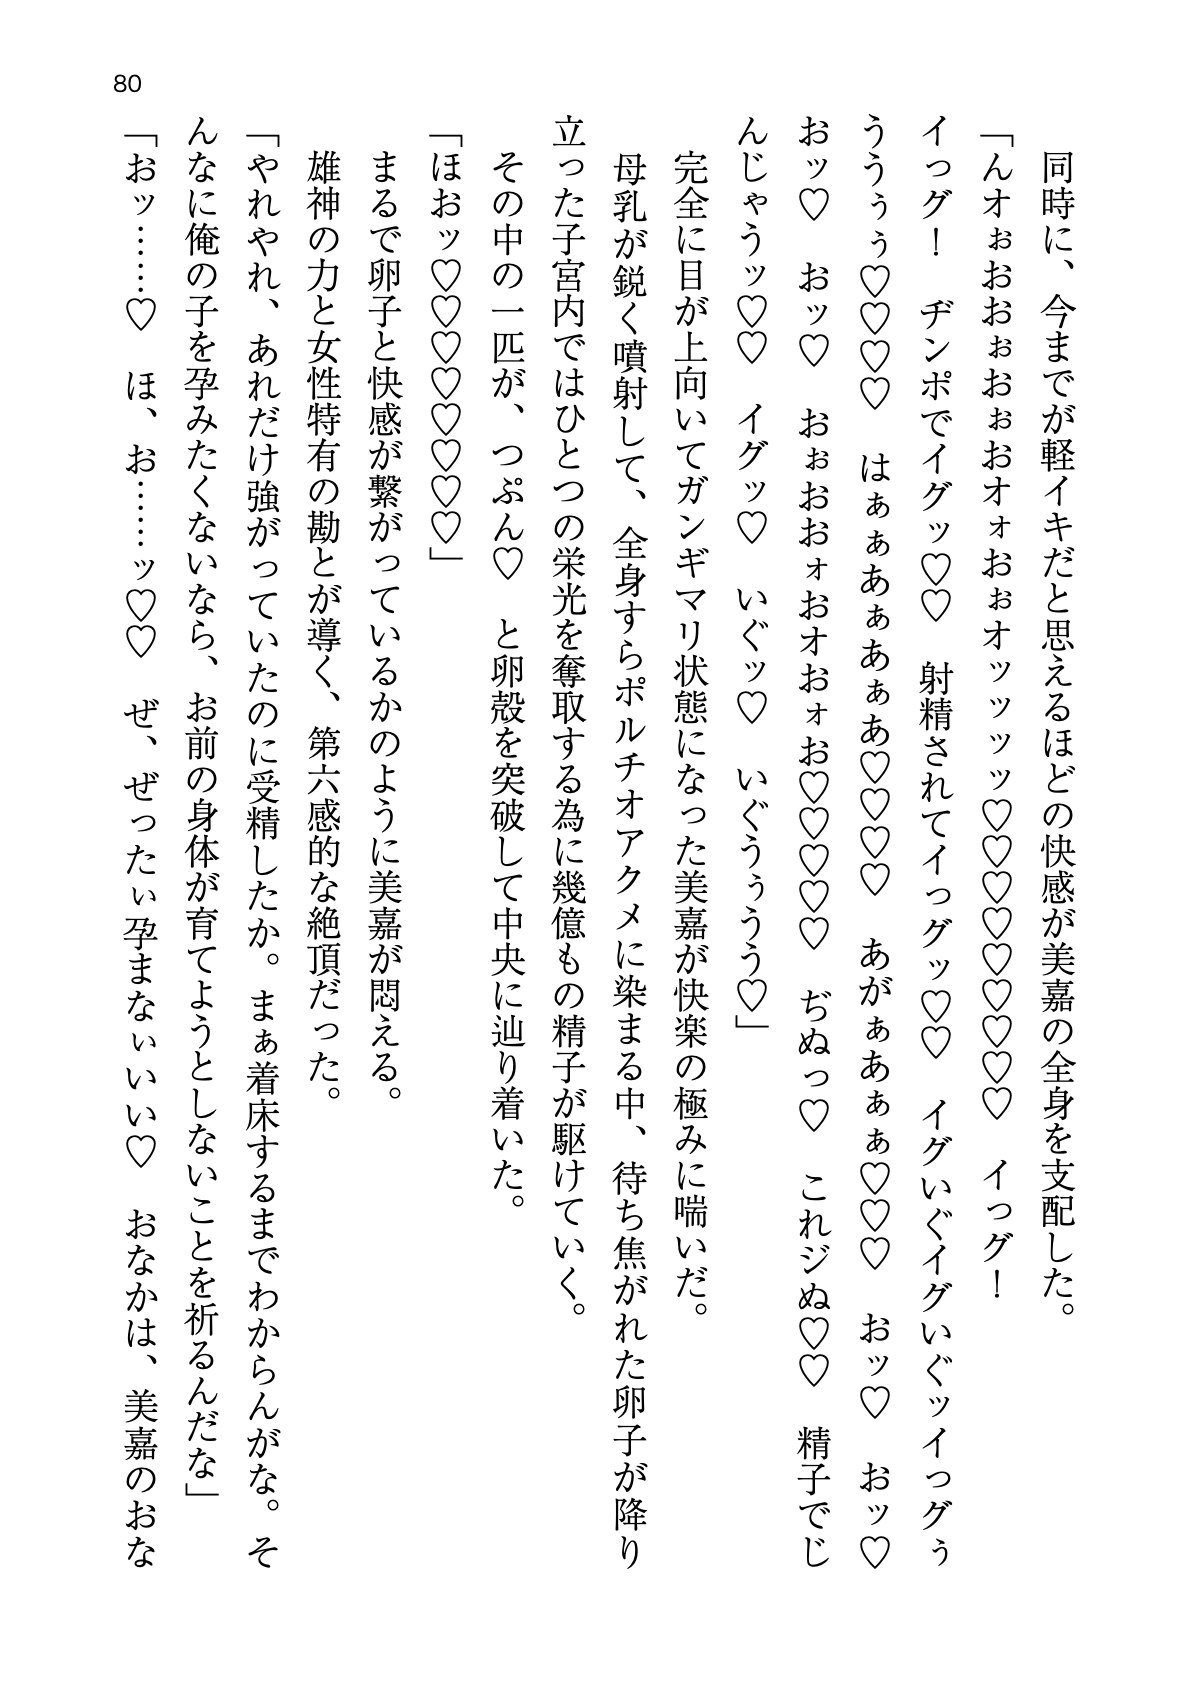 80
同時に、今までが軽イキだと思えるほどの快感が美嘉の全身を支配した。
「んオぉおおぉおぉおオォおぉオッッッッ♡♡♡♡♡♡♡♡♡　イっグ！
イっグ！　ヂンポでイグッ♡♡　射精されてイっグッ♡♡　イグいぐイグいぐッイっグぅ
ううぅぅ♡♡♡♡　はぁぁあぁあぁあ♡♡♡♡　あがぁあぁぁ♡♡♡　おッ♡　おッ♡
おッ♡　おッ♡　おぉおおォおオおォお♡♡♡♡♡　ぢぬっ♡　これジぬ♡♡　精子でじ
んじゃうッ♡♡　イグッ♡　いぐッ♡　いぐうぅうう♡」
完全に目が上向いてガンギマリ状態になった美嘉が快楽の極みに喘いだ。
母乳が鋭く噴射して、全身すらポルチオアクメに染まる中、待ち焦がれた卵子が降り
立った子宮内ではひとつの栄光を奪取する為に幾億もの精子が駆けていく。
その中の一匹が、つぷん♡　と卵殻を突破して中央に辿り着いた。
「ほおッ♡♡♡♡♡♡♡♡」
まるで卵子と快感が繋がっているかのように美嘉が悶える。
雄神の力と女性特有の勘とが導く、第六感的な絶頂だった。
「やれやれ、あれだけ強がっていたのに受精したか。まぁ着床するまでわからんがな。そ
んなに俺の子を孕みたくないなら、お前の身体が育てようとしないことを祈るんだな」
「おッ……♡　ほ、お……ッ♡♡　ぜ、ぜったぃ孕まないぃいい♡　おなかは、美嘉のおな